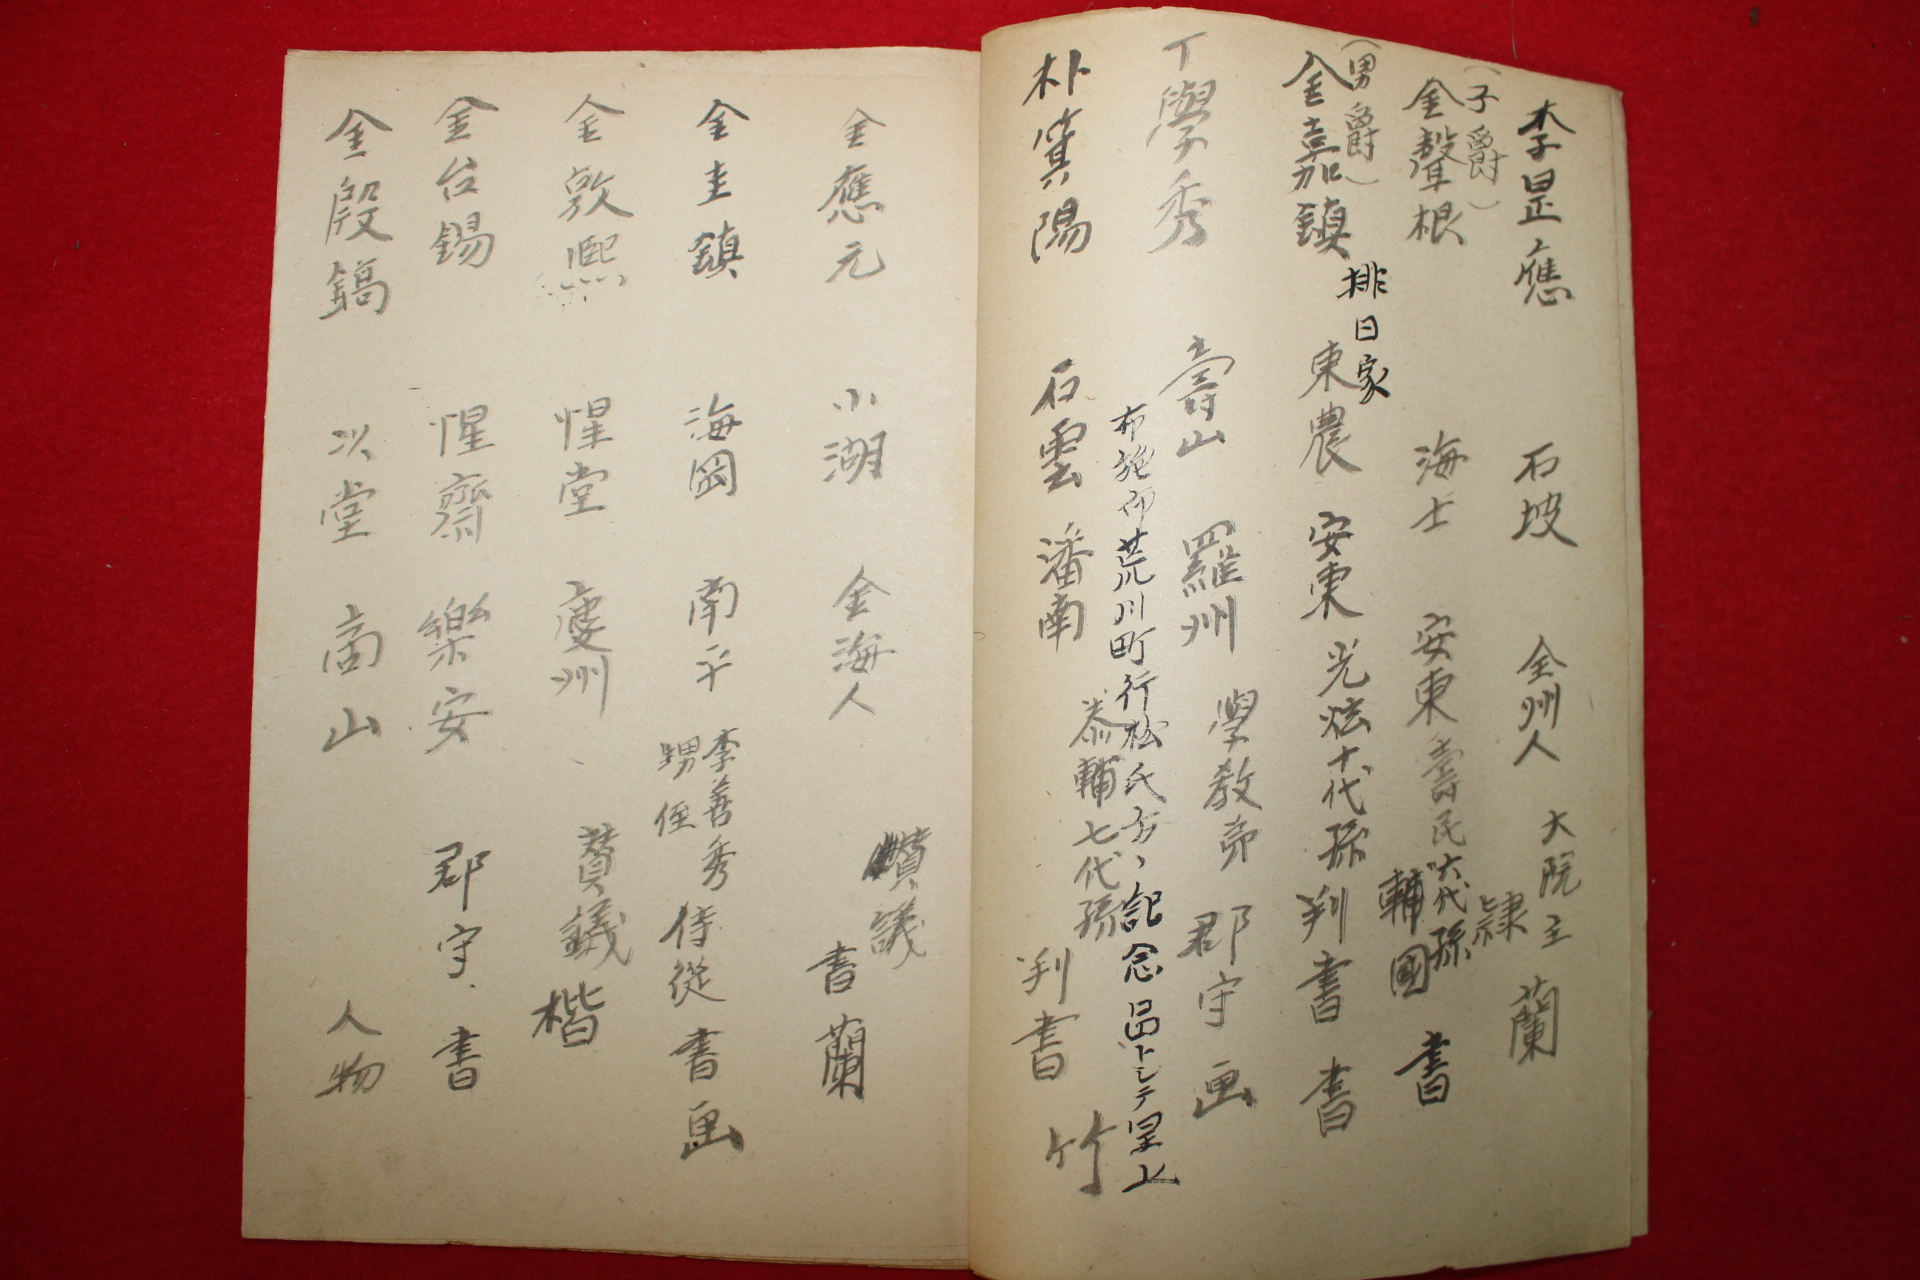 李昰應 石坡 全州人 大院王 蘭
隷
(子爵)
金聲根 海士 安東 壽民六代孫 輔國 書
(男爵)
金嘉鎮 東農 安東 光炫十代孫 判書 書
排日家
丁學秀 壽山 羅州 學教弟 郡守 画
布施仰荒川町行松氏方、記念品トシテ呈上
朴箕陽 石雲 潘南 泰輔七代孫 判書 竹
金應元 小湖 金海人 書蘭
讃議
金圭鎮 海岡 南平 李善秀甥侄 侍從 書画
金敦熙 惺堂 慶州 賛議 楷
金台錫 惺齋 樂安 郡守 書
金殷鎬 以堂 高山 人物